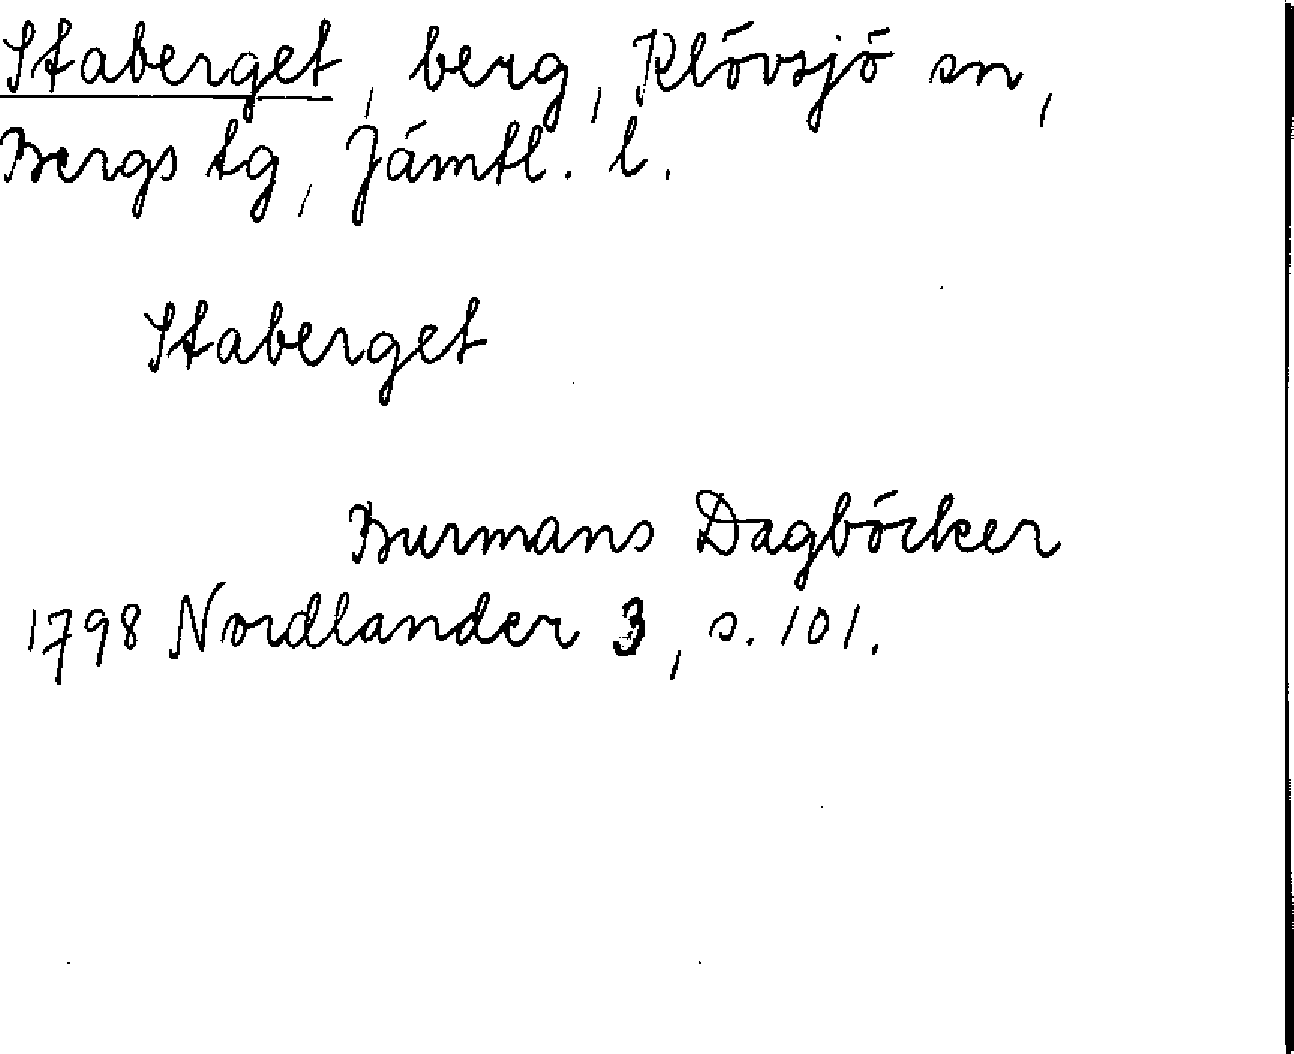 Staberget, berg, Klövsjö sn,
Bergs tg, Jämtl. l.
Staberget
Burmans Dagböcker
1798 Nordlander 3, s. 101.